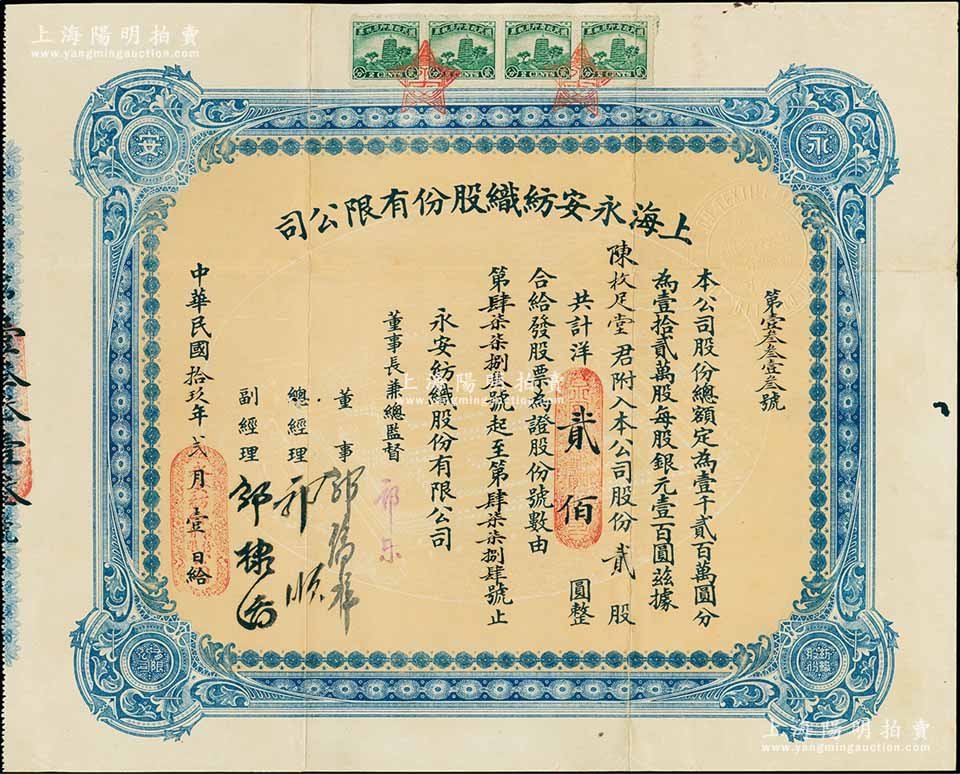 上海陽明拍賣
www.yangmingauction.com
2 CENTS 2 CENTS 2 CENTS 2 CENTS
永安
上海永安紡織股份有限公司
第壹叁叁壹叁號
本公司股份總額定為壹千貳百萬圓分
為壹拾貳萬股每股銀元壹百圓茲據
陳枚尼堂君附入本公司股份貳股
共計洋貳佰圓整
合給發股票為證股份號數由
第肆柒柒捌叁號起至第肆柒柒捌肆號止
永安紡織股份有限公司
董事長兼總監督
董事
總經理 郭順
副經理 郭棣活
中華民國拾玖年弍月壹日給
紡織股份
有限公司
上海陽明拍賣
www.yangmingauction.com